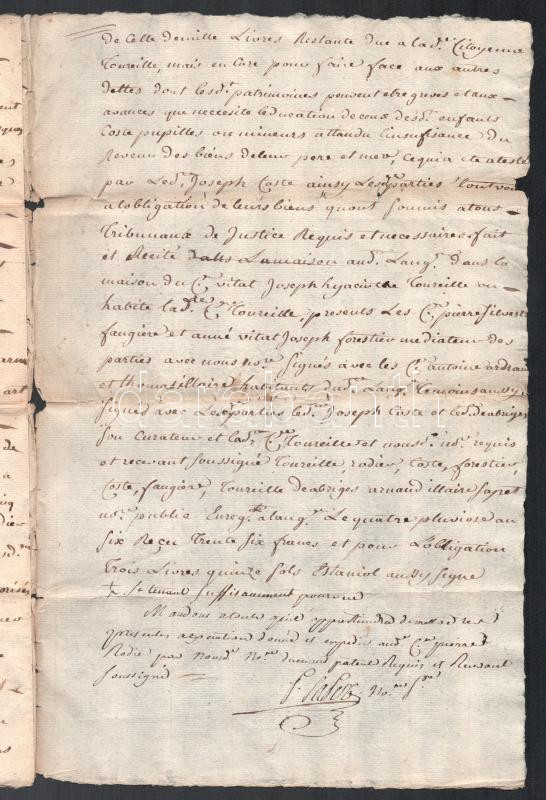 De Celle demille Livres Restante due a lad.e Citoyenne
Toureille, mais en Core pour faire face aux autres
dettes dont lesd.t patrimoines peuvent etre
avances que necesite leducation deceux desd.t enfants
Coste pupilles ou mineurs attandu linsufiance du
Revenu des biens deleur pere et mere, ce qui a ete ateste
par Led.t Joseph Coste ainsy Lesd.parties
a lobligation de leurs biens quont soumis atous
Tribunaux de Justice Requis et necessaires. fait
et Recité dans La maison aud. Lang.e Dans la
maison du C.n vital Joseph hyacinthe Toureille ou
habite lad.te C.ne Toureille, presents Les C.n pierre Silvest
faugière et anné vital Joseph forestier mediateur des
parties avec nous no.re Signés avec les C.n antoine
et thomas illaire habitants dud. Lang. Temoins aussy
Signés avec Lesd.parties led.t Joseph Coste et led. deabriges
Son Curateur et lad.e C.ne Toureille et nousd.t no.re requis
et recevant soussigné Toureille, rodier, Coste, forestier
Coste, faugière, Toureille deabriges arnaud illaire
no.re public Enreg.e a lang.e Le quatre pluviose an
Six Reçu Trente Six francs et pour Lobligation
Trois Livres quinze Sols Estaniol aussy signe
+ Se tenant suffisamment pourvue
Mandons
presentes
Rodier par Nousd.t No.re patenté Requis et Recevant
Soussigné
No.re
darabanth